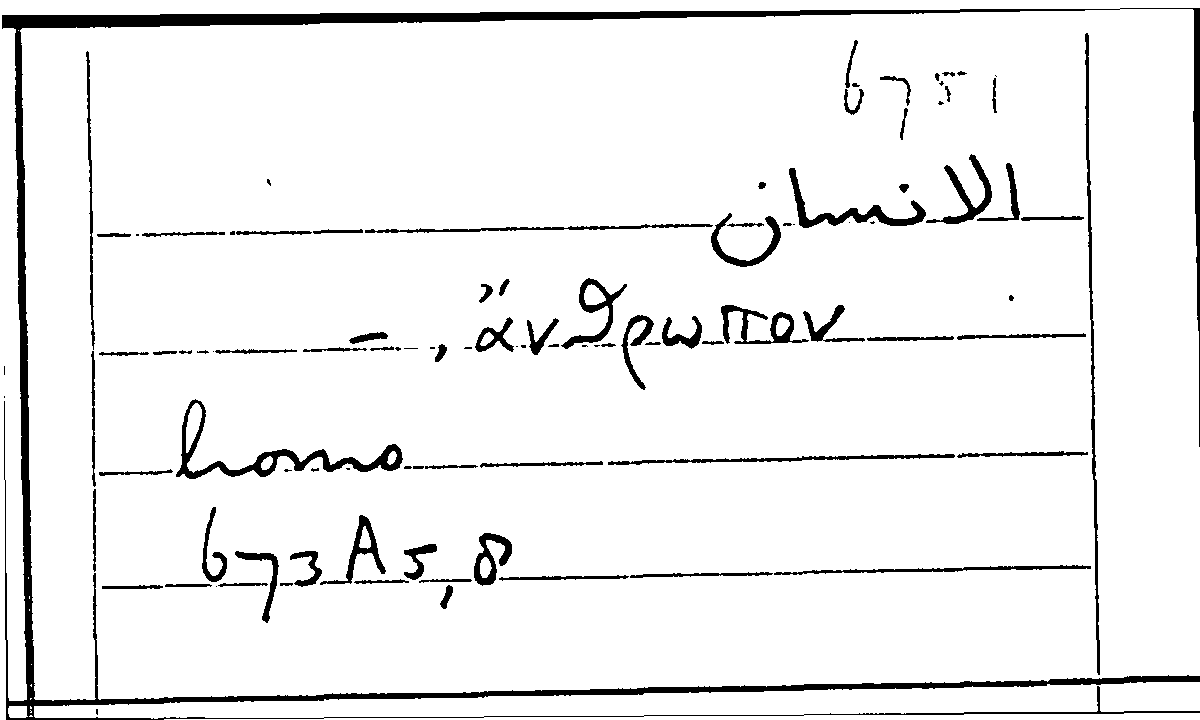 6751
الانسان
–, ἄνθρωπον
homo
673A5,8